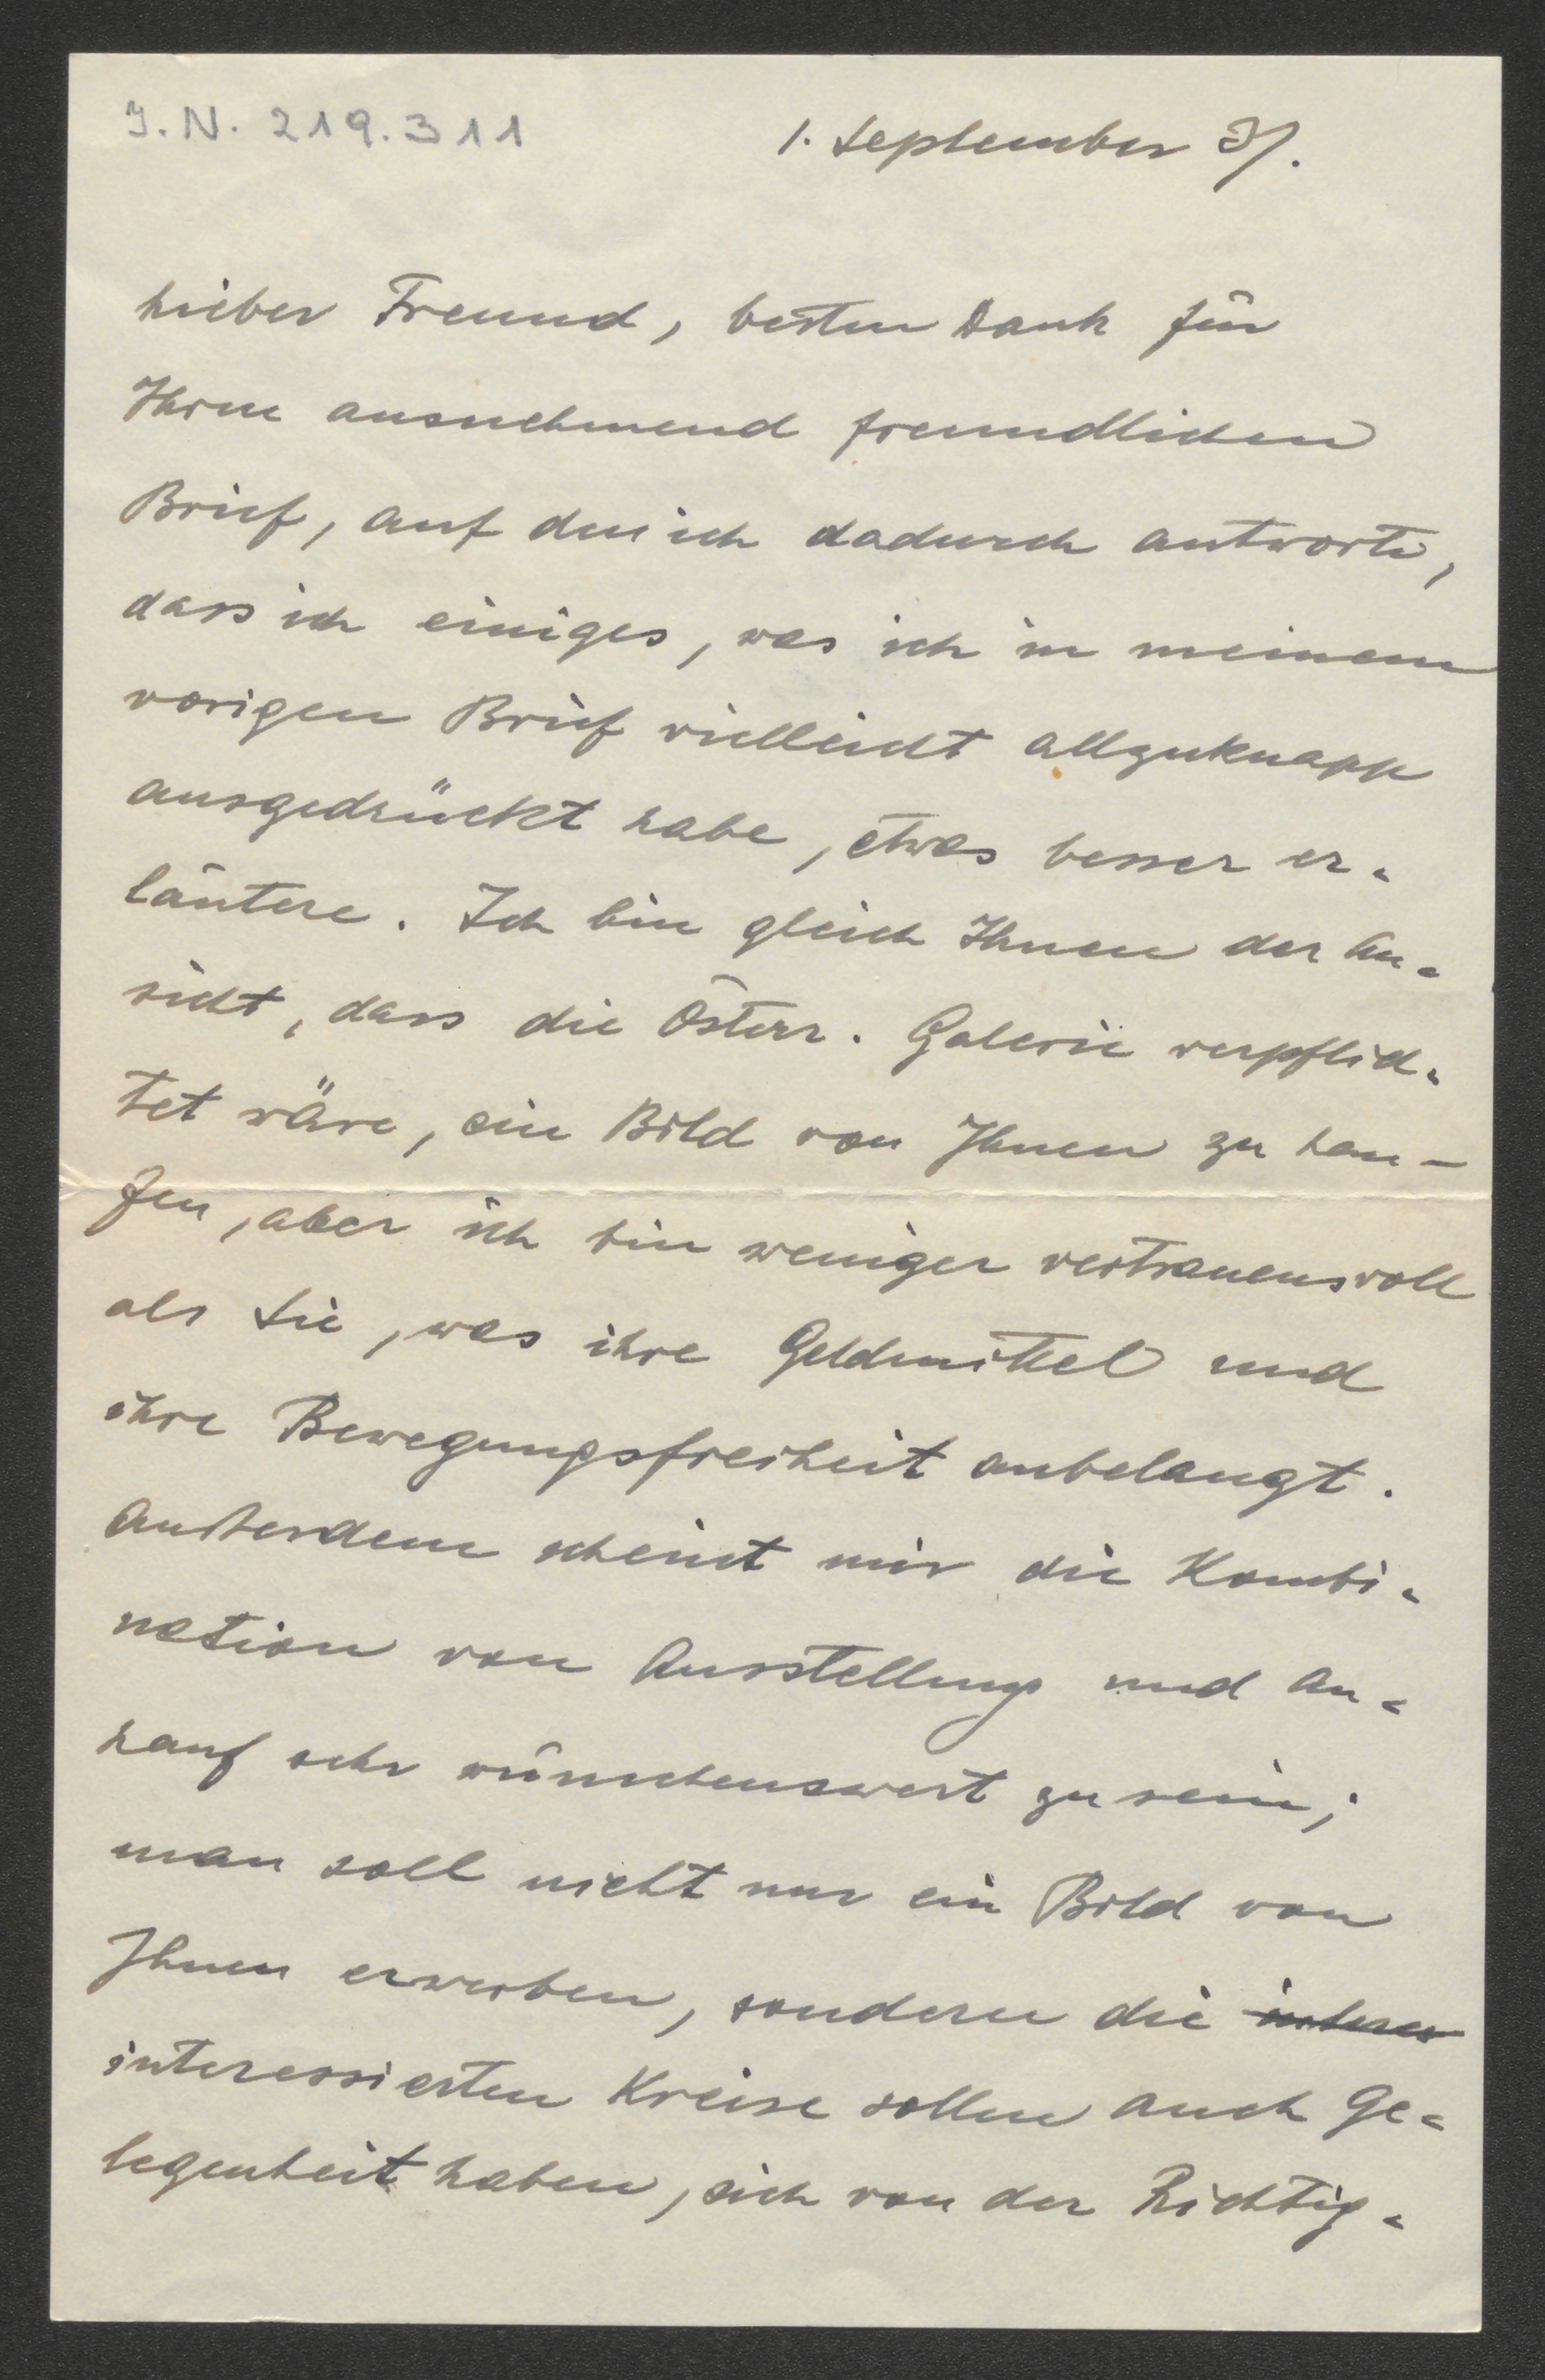 I.N. 219.311
1. September 37.
Lieber Freund, besten Dank für
Ihren ausnehmend freundlichen
Brief, auf den ich dadurch antworte,
dass ich einiges, was ich in meinem
vorigen Brief vielleicht allzuknapp
ausgedrückt habe, etwas besser er-
läutere. Ich bin gleich Ihnen der An-
sicht, dass die Österr. Galerie verpflich-
tet wäre, ein Bild von Ihnen zu kau-
fen, aber ich bin weniger vertrauensvoll
als Sie, was ihre Geldmittel und
ihre Bewegungsfreiheit anbelangt.
Außerdem scheint mir die Kombi-
nation von Ausstellung und An-
kauf sehr wünschenswert zu sein;
man soll nicht nur ein Bild von
Ihnen erwerben, sondern die
interessierten Kreise sollen auch Ge-
legenheit haben, sich von der Richtig-